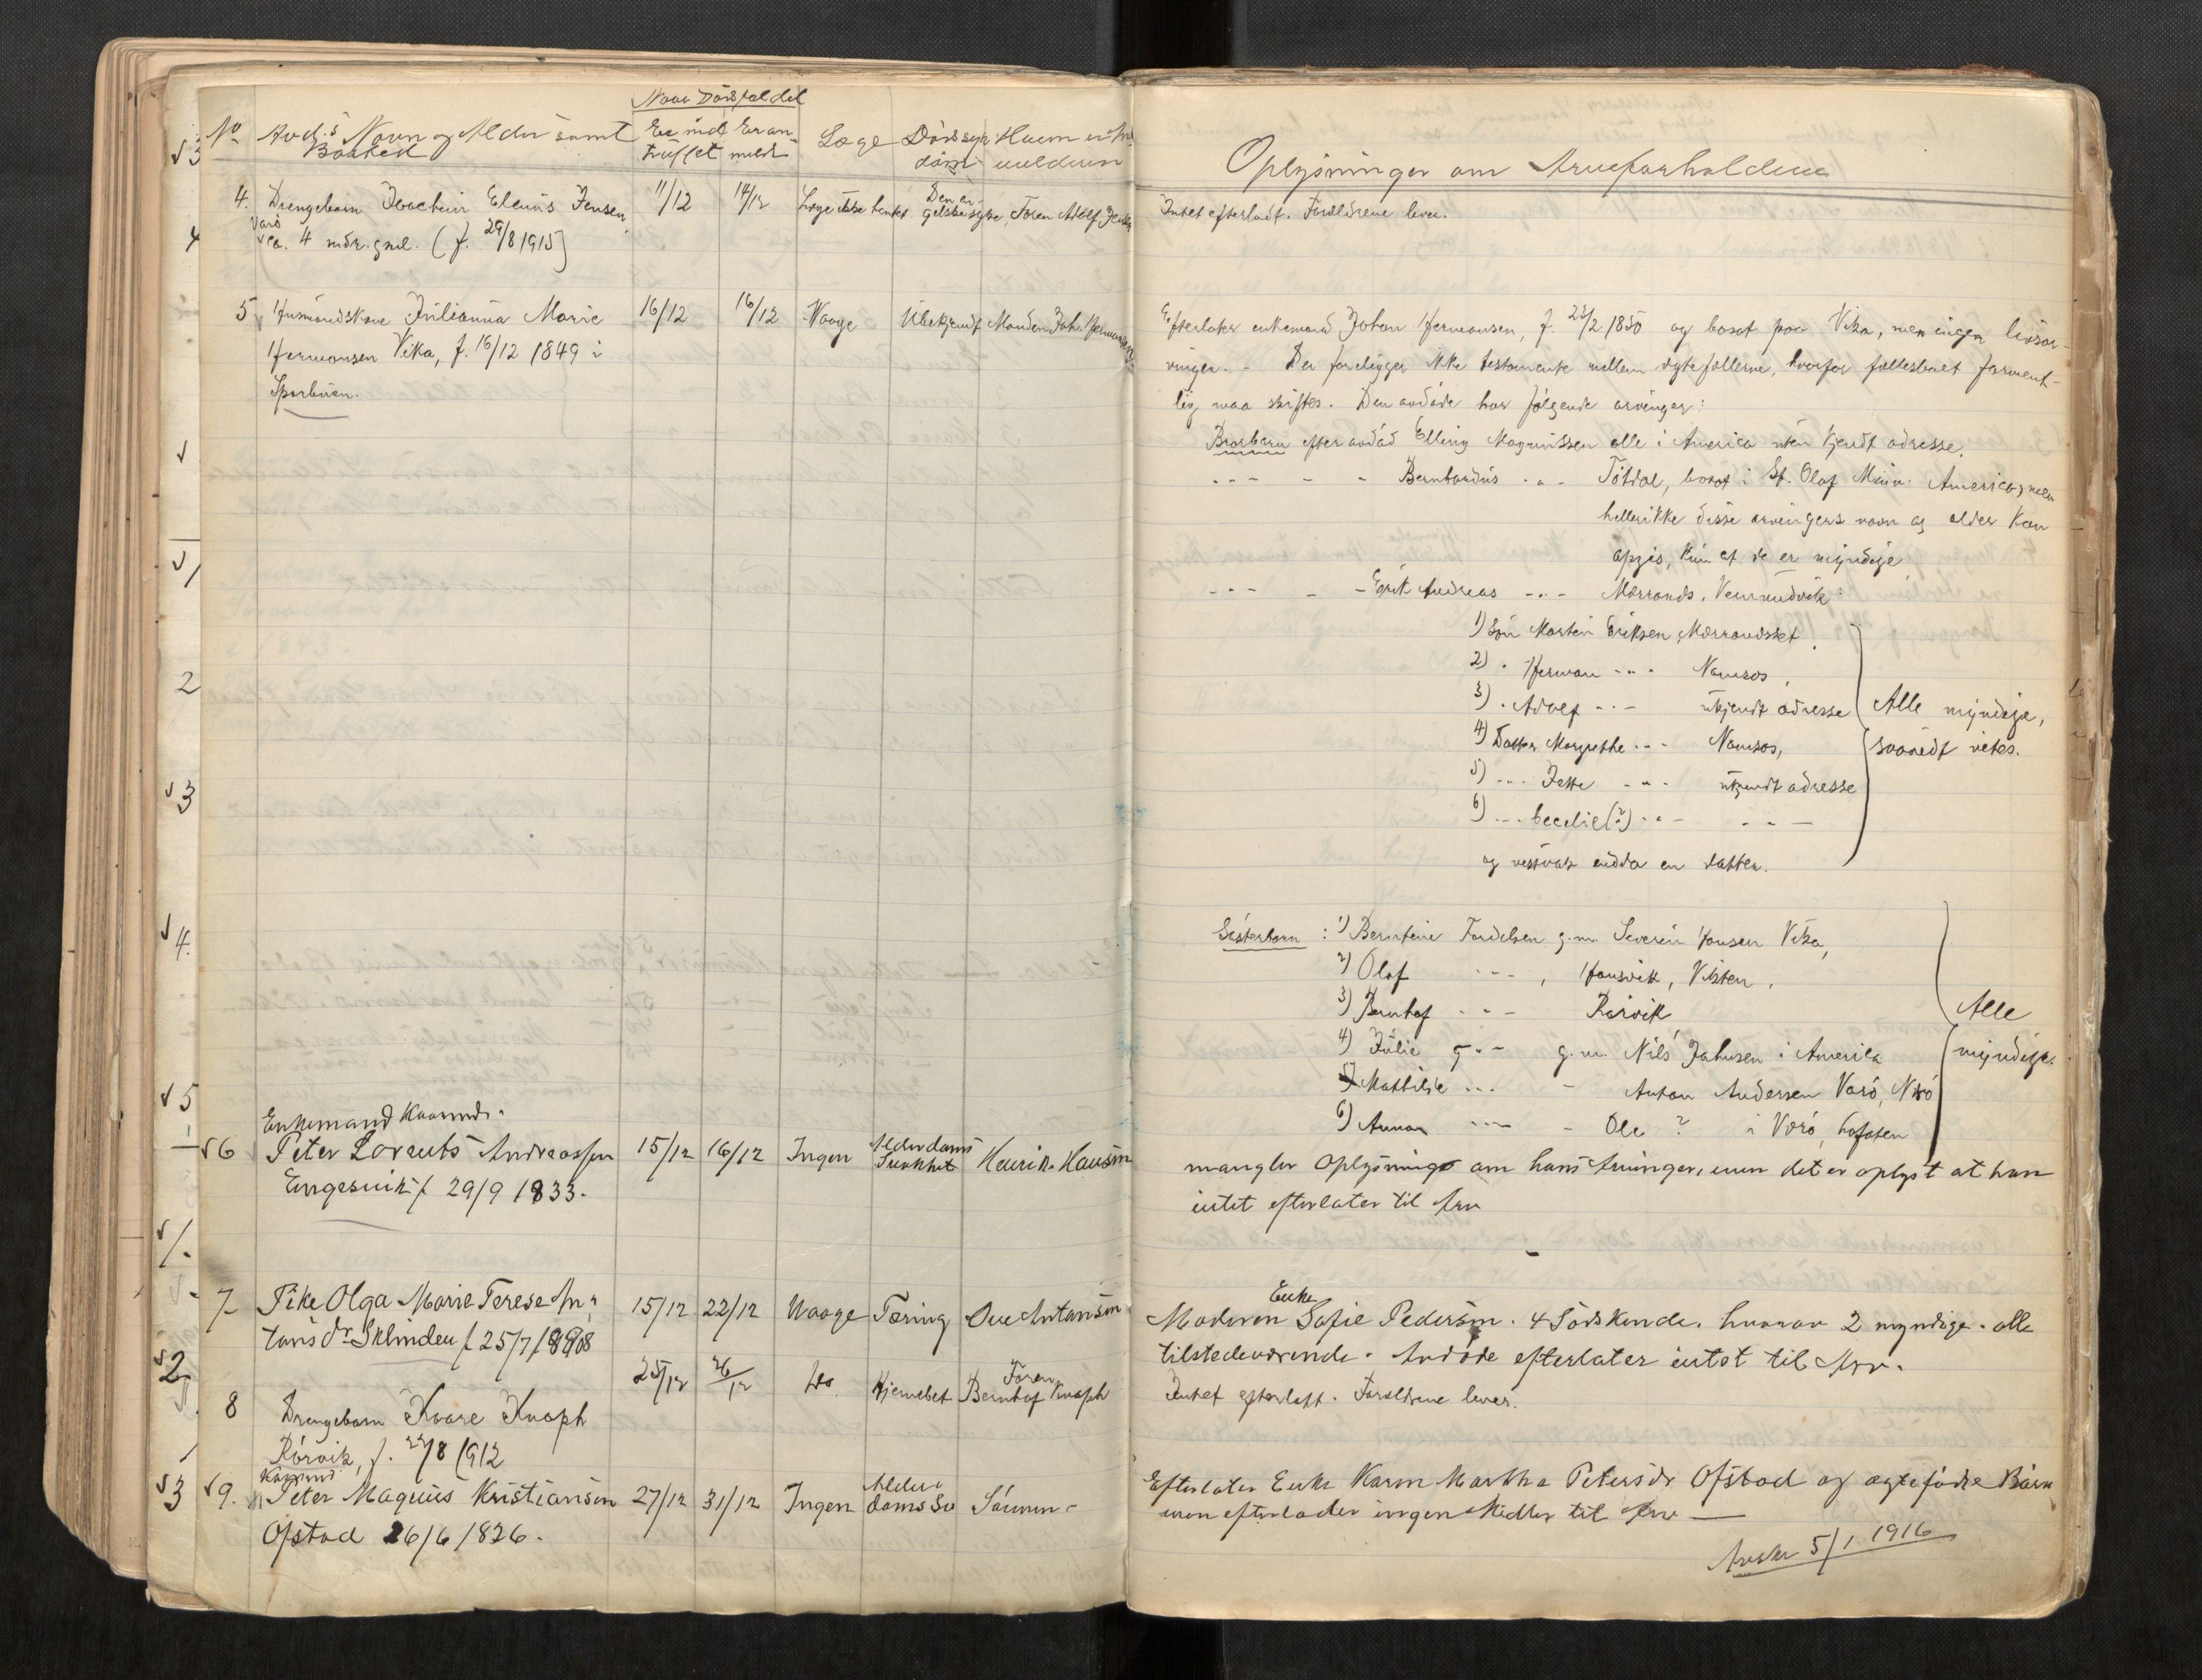 Naar Dødsfaldet
No Avd.s Navn og Alder samt Er ind Er an- Læge Dødssyg- Hvem er An-
Bosted truffet meldt dom melderen
4. Drengebarn Joachim Elenus Jensen 11/12 14/12 Læge ikke hentet Den en- Faren Adolf Jensen
gelske syke
Værø
ca. 4 mdr. gml. (f. 29/8 1915)
5 Husmandskone Julianna Marie 16/12 16/12 Waage Ubekjendt Manden Joh. Hermansen
Hermansen Vika, f. 16/12 1849 i
Sparbuen.
Enkemand Kaarmd.
6 Peter Lorents Andreassen 15/12 16/12 Ingen Alderdoms Henrik Hansen
Svakhet
Engesvik f 29/9 1833.
7 Pike Olga Marie Terese An- 15/12 22/12 Waage Tæring Ove Antonsen
tons dr Sklinden f 25/7 1898
25/12 26/12 Do. Hjernebet Faren
Bernhof Knoph
8 Drengebarn Kaare Knoph
Rørvik, f. 22/8 1912
Kaarmd.
9. Peter Magnus Kristiansen 27/12 31/12 Ingen Alder- Sønnen
doms Sv
Ofstad 26/6 1826.
Oplysninger om Arveforholdene
Intet efterladt. Forældrene lever.
Efterlater enkemand Johan Hermansen, f. 23/2 1850 og bosat paa Vika, men ingen livsar-
vinger. - Der foreligger ikke testamente mellem egtefællerne, hvorfor fællesboet forment-
lig maa skiftes. Den avdøde har følgende arvinger:
Brorbarn efter avdød Elling Magnussen alle i America uten kjendt adresse.
--- - - Bernhardus -"- Tøtdal, bosat i St. Olaf Minn. America, men
heller ikke disse arvingers navn og alder kan
opgis, kun at de er myndige
--- - - Erik Andreas -"- Mærrands, Vemundvik:
1) Søn Martin Eriksen Mærrandsset.
2) " Herman -"- Namsos,
3) " Adolf -"- ukjendt adresse
4) Datter Margrethe -"- Namsos,
5) -"- Jette -"- ukjendt adresse
6) -"- Cecelie(?) -"- -"-
Alle myndige,
saavidt vites.
og visstnok endda en datter.
Søsterbarn: 1) Berntine Tordelsen g.m. Severin Hansen Vika,
2) Olaf -"-, Hansvik, Vikten,
3) Bernhof -"- Rørvik
4) Julie -"- g.m. Nils Johnsen i America
5) Mathilde -"- - Anton Andersen Varø, N.rø
6) Anna -"- - Ole ? i Værø, Lofoten
Alle
myndige.
mangler Oplysninger om hans Arvinger, men det er oplyst at han
intet efterlater til Arv
Enke
Moderen Sofie Pedersen. 4 Sødskende. hvorav 2 myndige. alle
tilstedeværende. Avdøde efterlater intet til Arv.
Intet efterlatt. Forældrene lever.
Efterlater Enke Karen Martha Petersdr Ofstad og egtefødte Børn
men efterlader ingen Midler til Arv
Avskr 5/1 1916